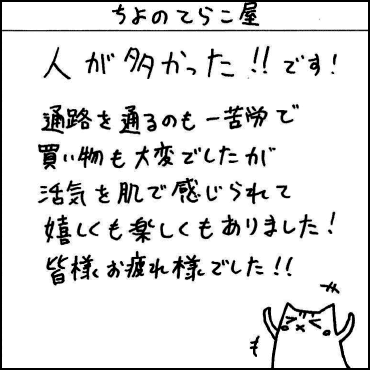 ちよのてらこ屋
人が多かった!!です!
通路を通るのも一苦労で
買い物も大変でしたが
活気を肌で感じられて
嬉しくも楽しくもありました!
皆様お疲れ様でした!!